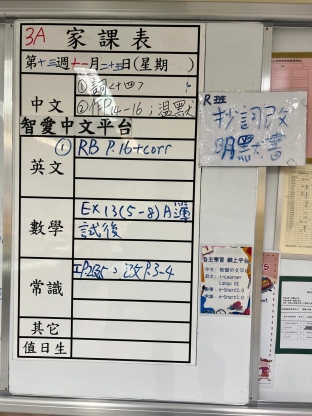 3A 家課表
第十三週十一月二十三日(星期 )
中文
① 詞<十四>
② 作P.14-16；溫默
智愛中文平台
英文
① RB P.16+corr
數學
EX 13(5-8) A簿
試後
常識
改P.3-4
其它
值日生
R班
抄詞改
明默書
自主學習 網上平台
中文：智愛中文平台